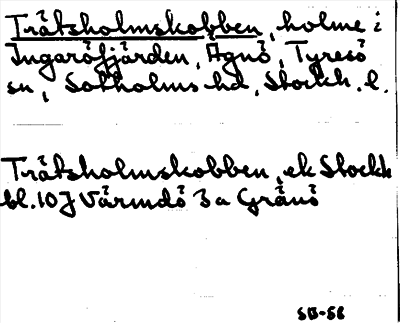 Trätsholmskobben, holme i
Ingaröfjärden, Ägnö, Tyresö
sn, Sotholms hd, Stockh. l.
Trätsholmskobben, ek Stockh
bl. 10J Värmdö 3a Gränö
SB-56